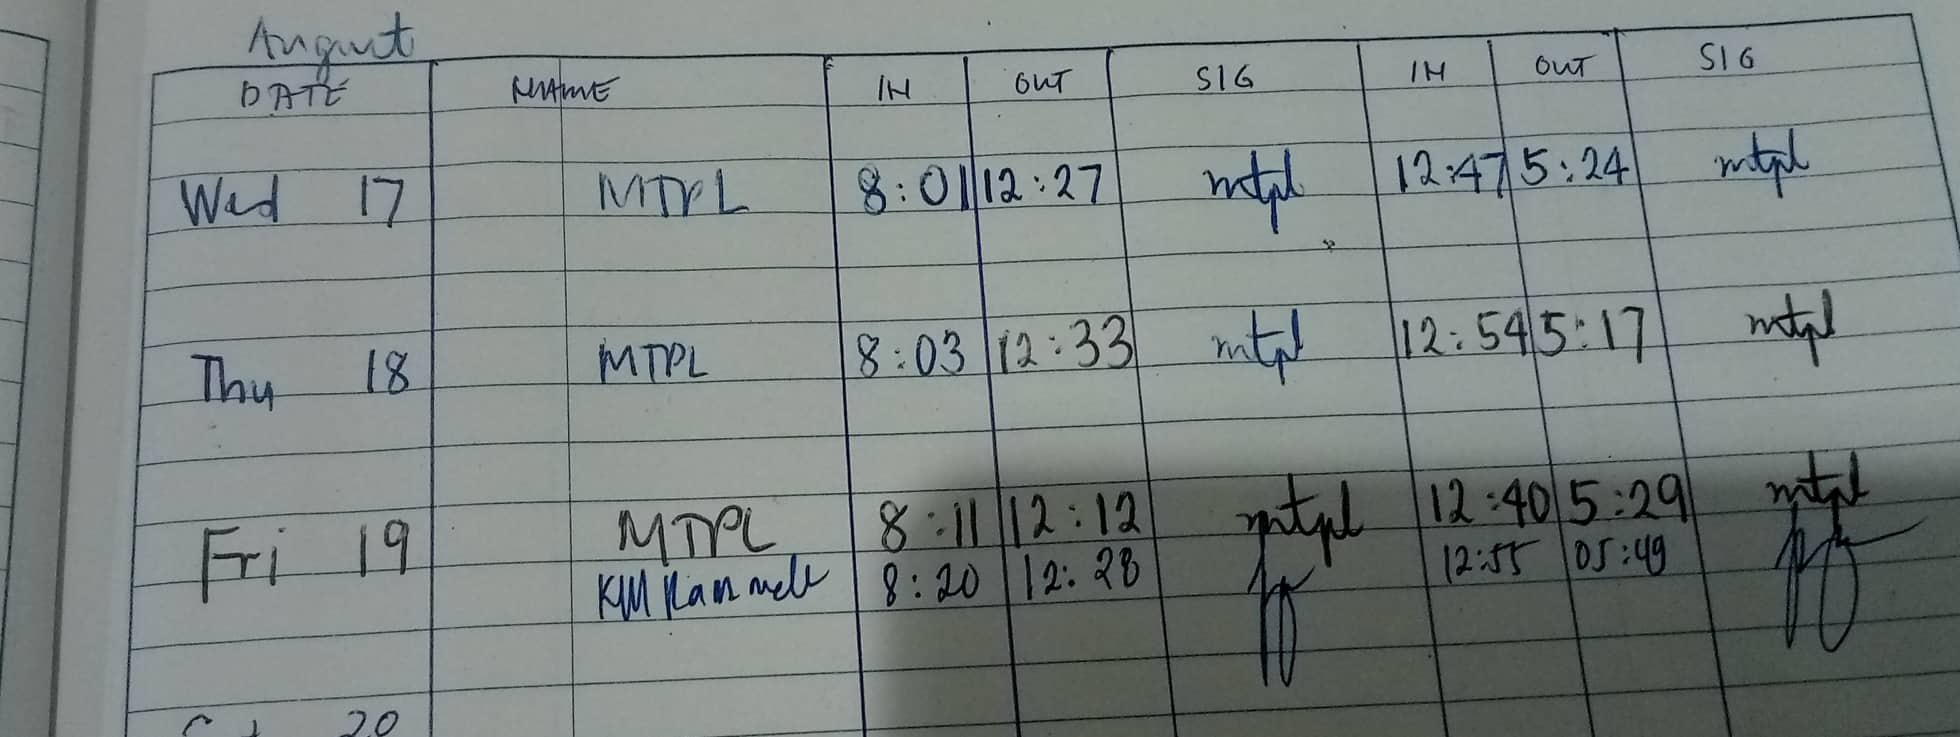 August
DATE NAME IN OUT SIG IN OUT SIG
Wed 17 MTPL 8:01 12:27 mtpl 12:47 5:24 mtpl
Thu 18 MTPL 8:03 12:33 mtpl 12:54 5:17 mtpl
Fri 19 MTPL 8:11 12:12 mtpl 12:40 5:29 mtpl
KM 8:20 12:28 12:55 05:49
20